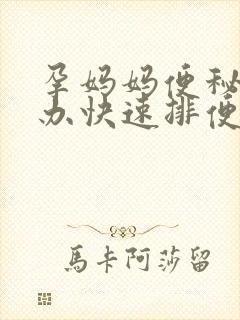 孕妈妈便秘
办快速排便
馬卡阿莎留